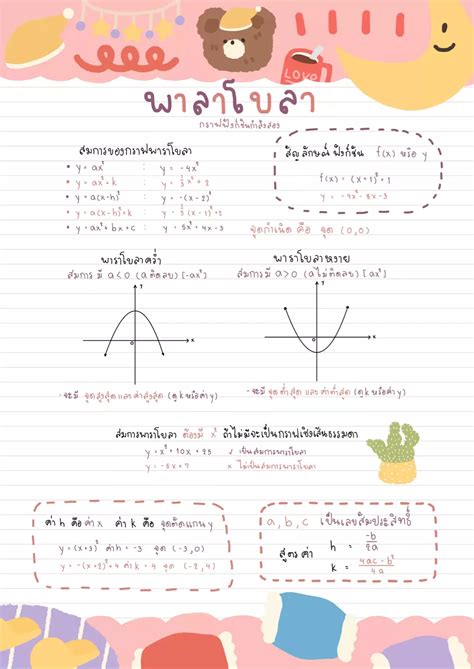 LOVE
พาลาโบลา
กราฟฟังก์ชันกำลังสอง
สมการของกราฟพาราโบลา
• y = ax² : y = -4x²
• y = ax² + k : y = ½x² + 2
• y = a(x-h)² : y = -(x-2)²
• y = a(x-h)² + k : y = (x-1)² + 2
• y = ax² + bx + c : y = 5x² + 4x - 3
สัญลักษณ์ ฟังก์ชัน f(x) หรือ y
f(x) = (x+1)² + 1
y = -4x² - 8x - 3
จุดกำเนิด คือ จุด (0,0)
พาราโบลาคว่ำ
สมการ มี a<0 (a ติดลบ) [-ax²]
พาราโบลาหงาย
สมการ มี a>0 (a ไม่ติดลบ) [ax²]
x
0
x
0
- จะมี จุดสูงสุด และ ค่าสูงสุด (ดู k หรือค่า y)
- จะมี จุดต่ำสุด และ ค่าต่ำสุด (ดู k หรือค่า y)
สมการพาราโบลา ต้องมี x² ถ้าไม่มีจะเป็นกราฟเชิงเส้นธรรมดา
y = x² + 10x + 25 ✓ เป็นสมการพาราโบลา
y = -5x + 7 × ไม่เป็นสมการพาราโบลา
ค่า h คือ ค่า x ค่า k คือ จุดตัดแกน y
y = (x+3)² ค่า h = -3 จุด (-3,0)
y = -(x+2)² + 4 ค่า k = 4 จุด (-2,4)
a, b, c เป็นเลขสัมประสิทธิ์
สูตร ค่า h = -b/2a
k = 4ac-b²/4a